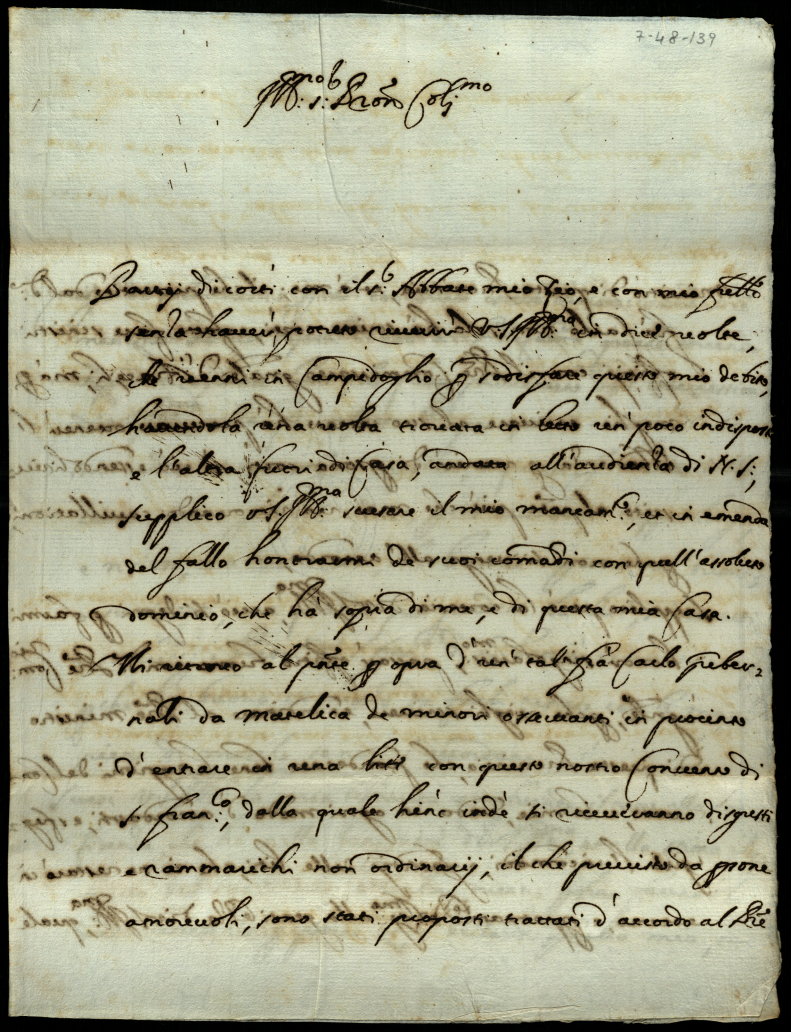 7-48-139
Ill:mo s: Pron Col:mo
Partij di costì con il s: Abbate mio Zio, e con mio frello
senza haver potuto riverir V.S. Ill:ma in dieci volte,
che in Campidoglio p sodisfare questo mio debito,
havendola una volta trovata in letto un' poco indisposta
e l'altra fuori di Casa, andata all'audienza di N. S:,
supplico V.S. Ill:ma scusare il mio mancam:to, et in emenda
del fallo honorarmi de suoi comadi con quell'assoluto
dominio, che hà sopra di me, e di questa mia Casa.
Mi ritrovo al pnte p opra d' un' tal' frà Carlo
nali da Matelica de minori osservanti in procinto
d'entrare in una lite con questo nostro Convento di
s. Fran:co, dalla quale hinc inde si riceveranno disgusti
e rammarichi non ordinarij, il che previsto da psone
amorevoli, sono stati proposti trattati d'accordo al Pre